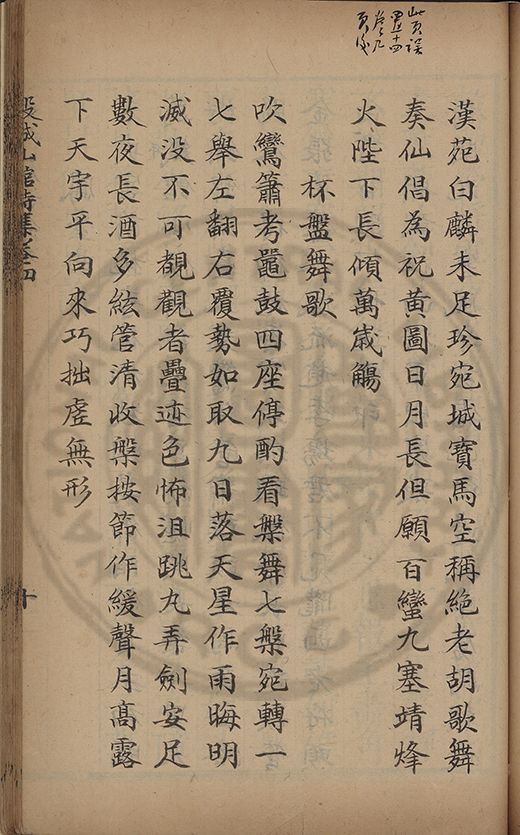 此頁誤
置在十四
卷九
頁後
漢苑白麟未足珍宛城寶馬空稱絶老胡歌舞
奏仙倡為祝黃圖日月長但願百蠻九塞靖烽
火陛下長傾萬歲觴
杯盤舞歌
吹鸞簫考鼉鼓四座停酌看槃舞七槃宛轉一
七舉左翻右覆勢如取九日落天星作雨晦明
滅没不可覩觀者疊迹色怖沮跳丸弄劍安足
數夜長酒多絃管清收槃按節作緩聲月高露
下天宇平向來巧拙虛無形
穀城山館詩集卷四
十